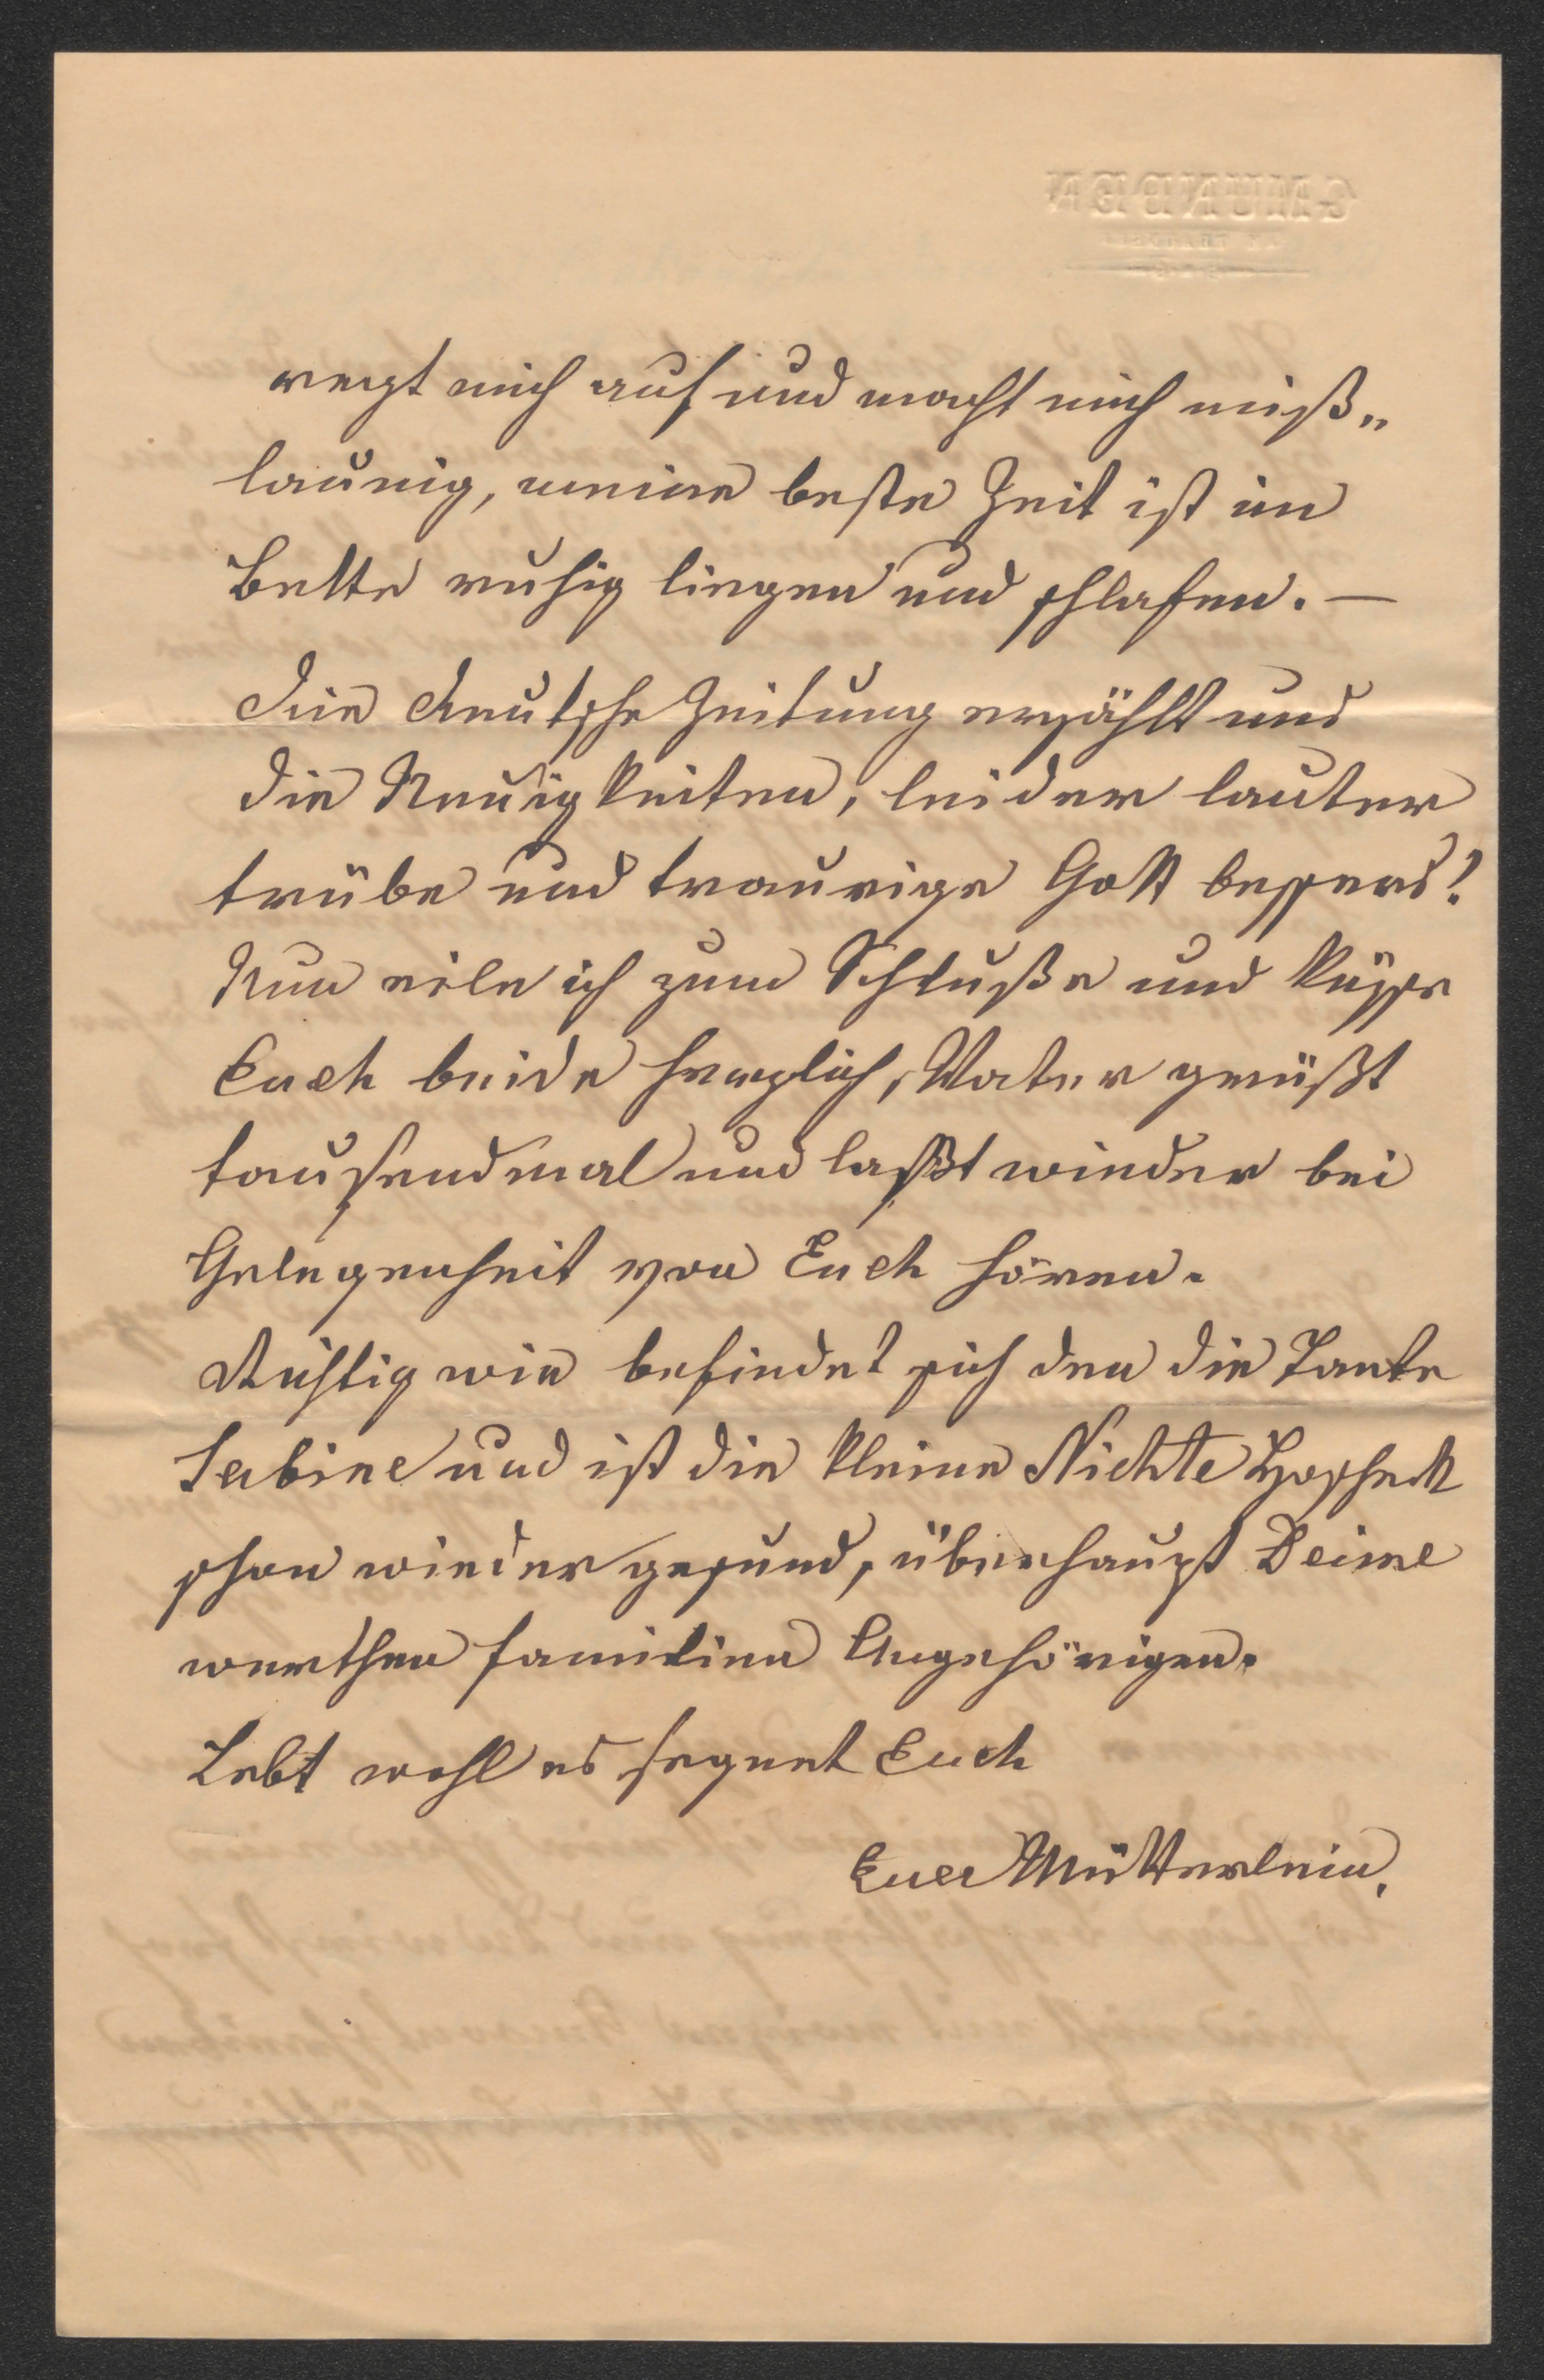 regt mich auf und macht mich miß„
launig, meine beste Zeit ist im
Bette ruhig liegen und schlafen. —
Die deutsche Zeitung erzählt uns
die Neuigkeiten, leider lauter
trübe und traurige Gott bessers!
Nun eile ich zum Schluße und küsse
Euch beide herzlich, Vater grüßt
tausendmal und laßt wieder bei
Gelegenheit von Euch hören.
Richtig wie befindet sich den die Tante
Sabine und ist die kleine Nichte
schon wieder gesund, überhaupt Deine
werthen familien Angehörigen.
Lebt wohl es segnet Euch
Euer Mütterlein.